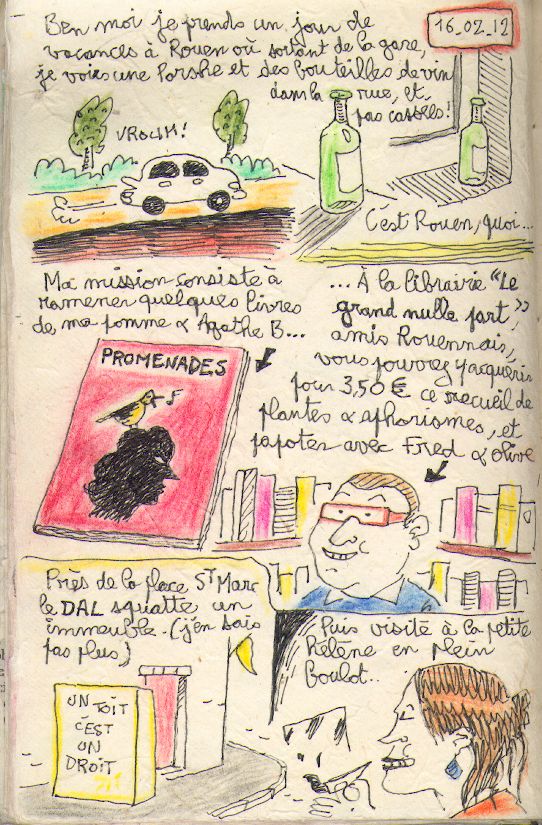 Ben moi je prends un jour de
vacances à Rouen où sortant de la gare,
je vois une Porshe et des bouteilles de vin
dans la rue, et
pas cassées !
16_02_12
VROUM !
C'est Rouen, quoi...
Ma mission consiste à
ramener quelques livres
de ma pomme & Agathe B...
... À la librairie "Le
grand nulle part",
amis Rouennais,
vous pouvez y acquérir
pour 3,50 € ce recueil de
plantes & aphorismes, et
papoter avec Fred & Olive
PROMENADES
Près de la place St Marc
le DAL squatte un
immeuble. (j'en sais
pas plus)
UN TOIT
C'EST
UN
DROIT
Puis visite à la petite
Hélène en plein
boulot..